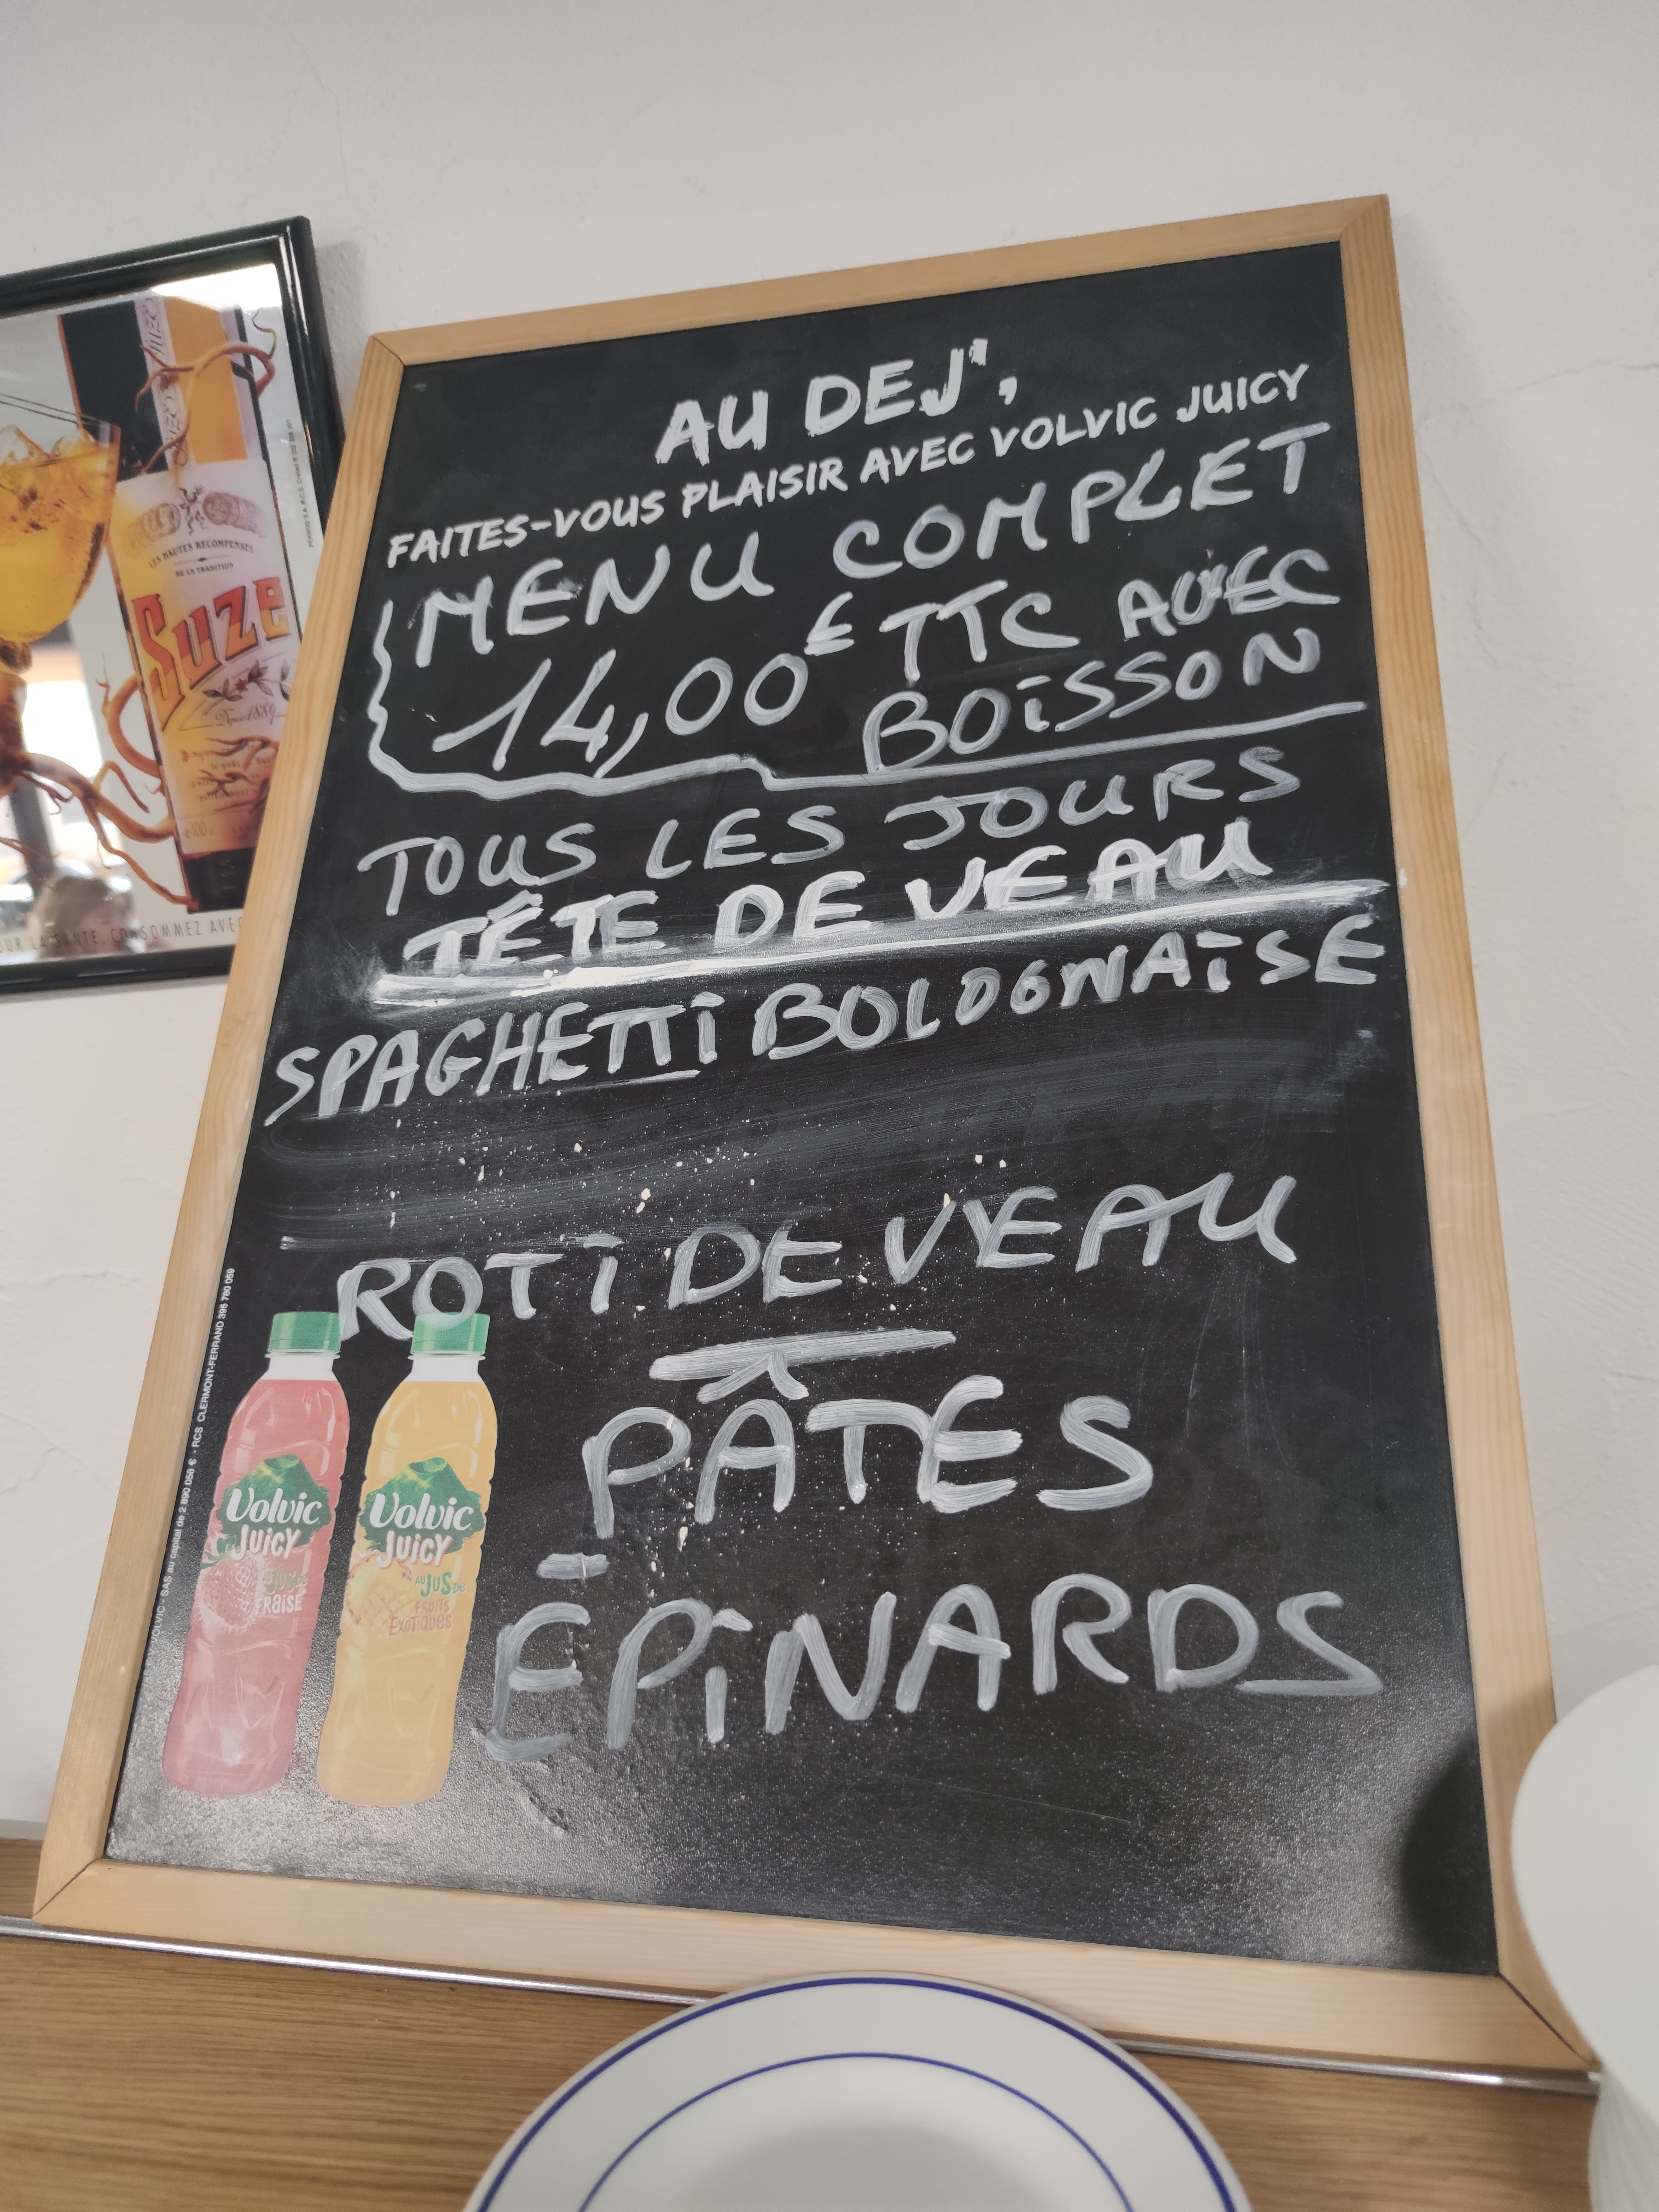 AU DEJ',
FAITES-VOUS PLAISIR AVEC VOLVIC JUICY
MENU COMPLET
14,00€ TTC AVEC
BOISSON
TOUS LES JOURS
TÊTE DE VEAU
SPAGHETTI BOLOGNAISE
ROTI DE VEAU
PÂTES
ÉPINARDS
Volvic
JUICY
FRAISE
Volvic
JUICY
AU JUS DE
FRUITS
EXOTIQUES
VOLVIC - SAS au capital de 2 890 058 € - RCS CLERMONT-FERRAND 395 780 059
LES HAUTES RECOMPENSES
DE LA TRADITION
Suze
Depuis 1889
LA SANTE, CONSOMMEZ AVEC